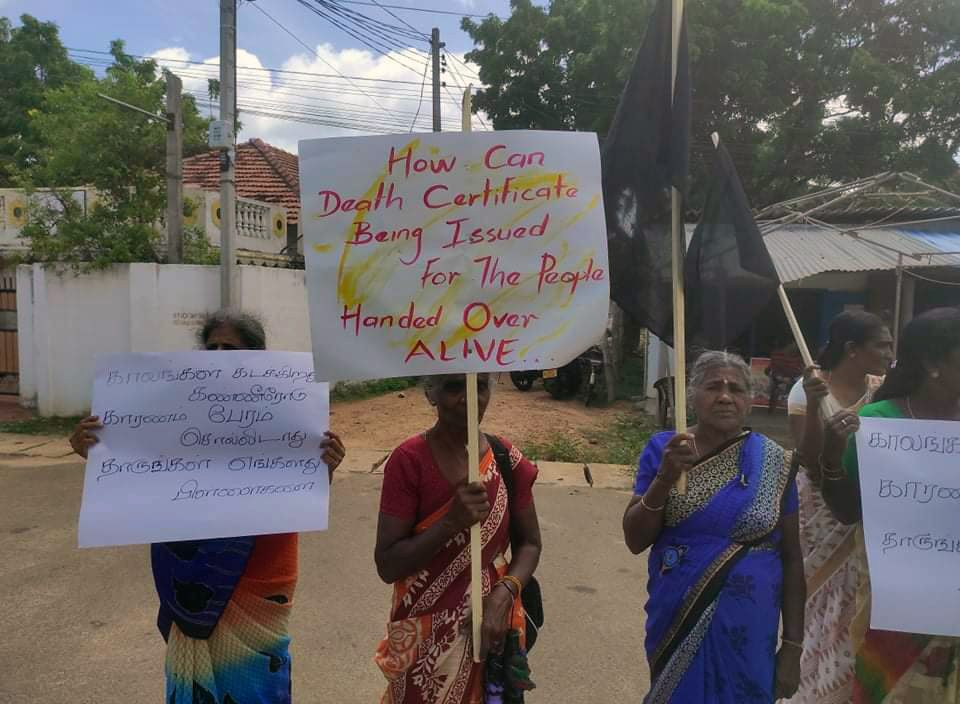 காலங்கள் கடக்கிறது
கண்ணீரோடு
காரணம் பேரம்
சொல்லிடாது
தாருங்கள் எங்களது
பிள்ளைகளை
How Can
Death Certificate
Being Issued
For The People
Handed Over
ALIVE...
காலங்க
காரண
தாருங்